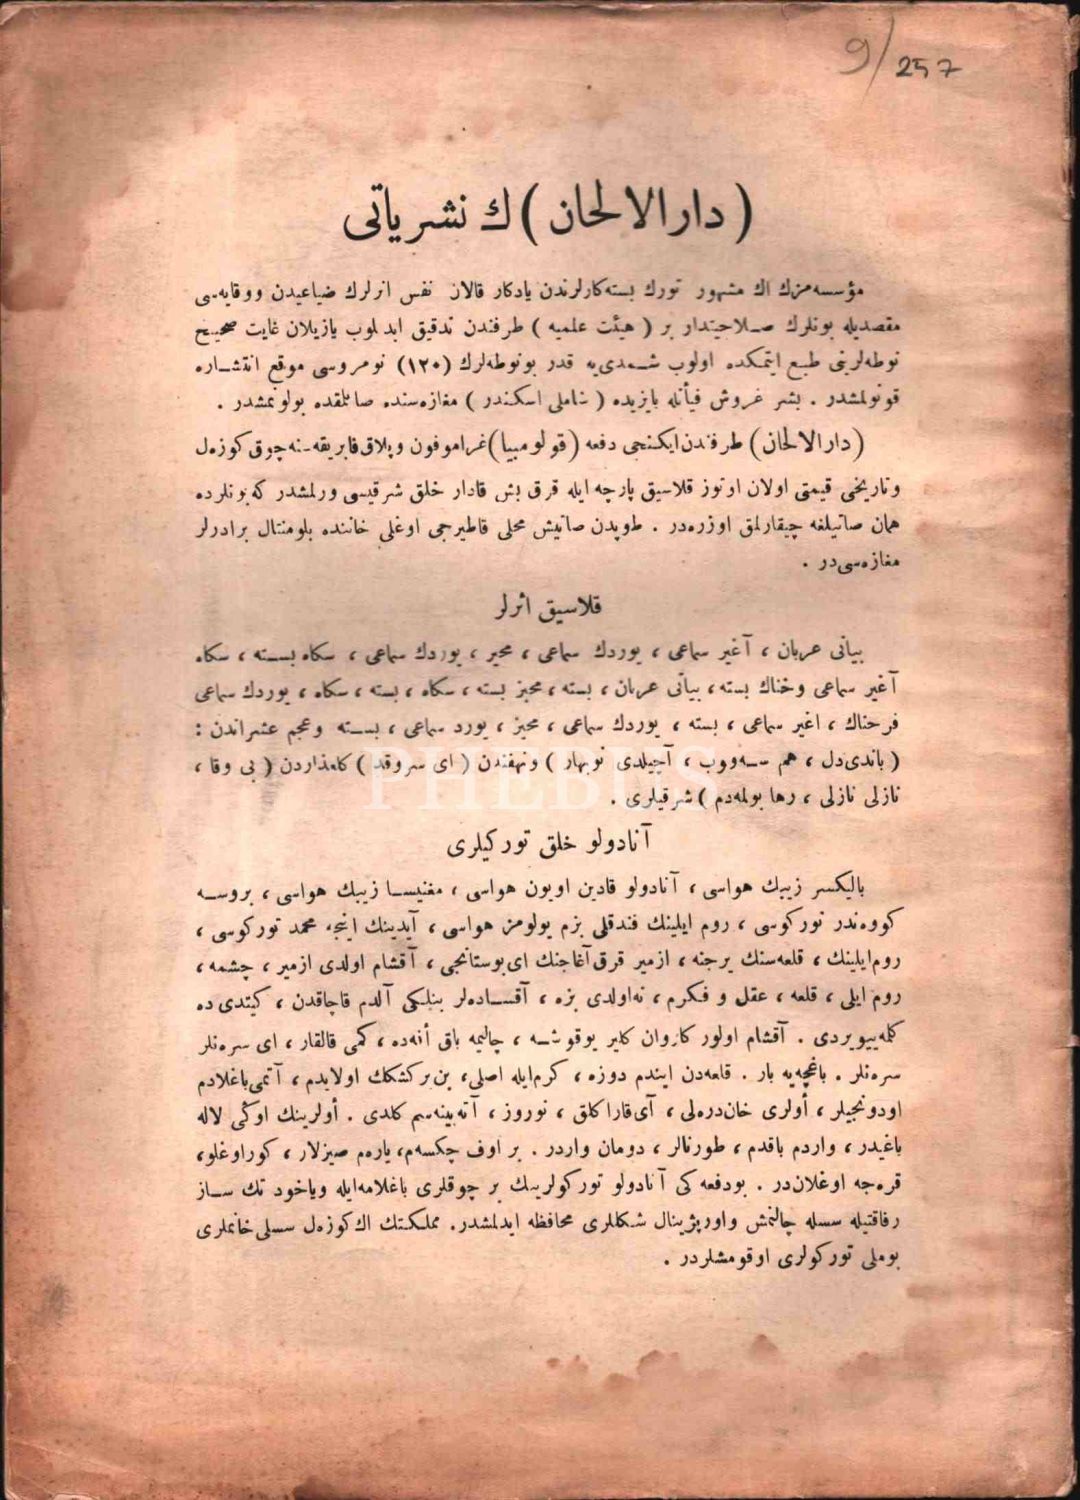 9/257
(دارالالحان)ك نشریاتی
مؤسسه‌مزك اك مشهور تورك بسته‌كارلرندن یادكار قالان نفس اثرلرك ضیاعیدن ووقایه‌سی
مقصدیله بونلرك صلاحیتدار بر (هیئت علمیه) طرفندن تدقیق ایدیلوب یازیلان غایت صحیح
نوطه‌لرینی طبع ایتمكده اولوب شمدی‌یه قدر بونوطه‌لرك (۱۲۰) نومروسی موقع انتشاره
قونولمشدر . بشر غروش فیأتله بایزیده (شاملی اسكندر) مغازه‌سنده صاتلقده بولونمشدر .
(دارالالحان) طرفندن ایكنجی دفعه (قولومبیا) غراموفون وپلاق فابریقه‌سنه چوق كوزه‌ل
وتاریخی قیمتی اولان اوتوز قلاسیق پارچه ایله قرق بش قادار خلق شرقیسی ویرلمشدر كه بونلرده
همان صاتیلغه چیقارلمق اوزره‌در . طوپدن صاتیش محلی قاطیرجی اوغلی خاننده بلومنتال برادرلر
مغازه‌سی‌در .
قلاسیق اثرلر
بیاتی عربان ، آغیر سماعی ، یوردك سماعی ، محیر ، یوردك سماعی ، سكاه بسته ، سكاه
آغیر سماعی وخناك بسته ، بیاتی عربان ، بسته ، محیر بسته ، سكاه ، بسته ، سكاه ، یوردك سماعی
فرحناك ، اغیر سماعی ، بسته ، یوردك سماعی ، محیر ، یورد سماعی ، بسته وعجم عشیراندن :
(باندی‌دل ، هم ، آچیلدی نوبهار) ونهفتندن (ای سروقد) كلعذاردن (بی وفا ،
نازلی نازلی ، رها بولمه‌دم) شرقیلری .
PHEBUS
آنادولو خلق توركیلری
بالیكسر زیبك هواسی ، آنادولو قادین اویون هواسی ، مغنیسا زیبك هواسی ، بروسه
كووه‌ندر توركوسی ، روم ایلینك فندقلی بزم یولومز هواسی ، آیدینك اینجه محمد توركوسی ،
روم‌ایلینك ، قلعه‌سنك برجنه ، ازمیر قرق آغاجنك ای بوستانجی ، آقشام اولدی ازمیر ، چشمه ،
روم ایلی ، قلعه ، عقل و فكرم ، نه‌اولدی بزه ، آقساده‌لر بنلیكی آلدم قاچاقدن ، كیتدی ده
كلمه‌ییویردی . آقشام اولور كاروان كلیر یوقوشه ، چالیمه باق أفه‌ده ، كمی قالقار ، ای سره‌نلر
سره‌نلر . باغچه‌یه بار . قلعه‌دن ایندم دوزه ، كرم‌ایله اصلی ، بن‌بركشكك اولایدم ، آتمی‌باغلادم
اودونجیلر ، أولری خان‌دره‌لی ، آی‌قاراكلق ، نوروز ، آته‌بینه‌سم كلدی . أولرینك اوكی لاله
باغیدر ، واردم باقدم ، طورنالر ، دومان واردر . بر اوف چكسه‌م ، یاره‌م صیزلار ، كوراوغلو ،
قره‌جه اوغلان‌در . بودفعه كی آنادولو توركولرینك بر چوقلری باغلامه‌ایله ویاخود تك ساز
رفاقتیله سسله چالنمش واورژینال شكللری محافظه ایدلمشدر . مملكتك اك كوزه‌ل سسلی خانملری
بوملی توركولری اوقومشلردر .